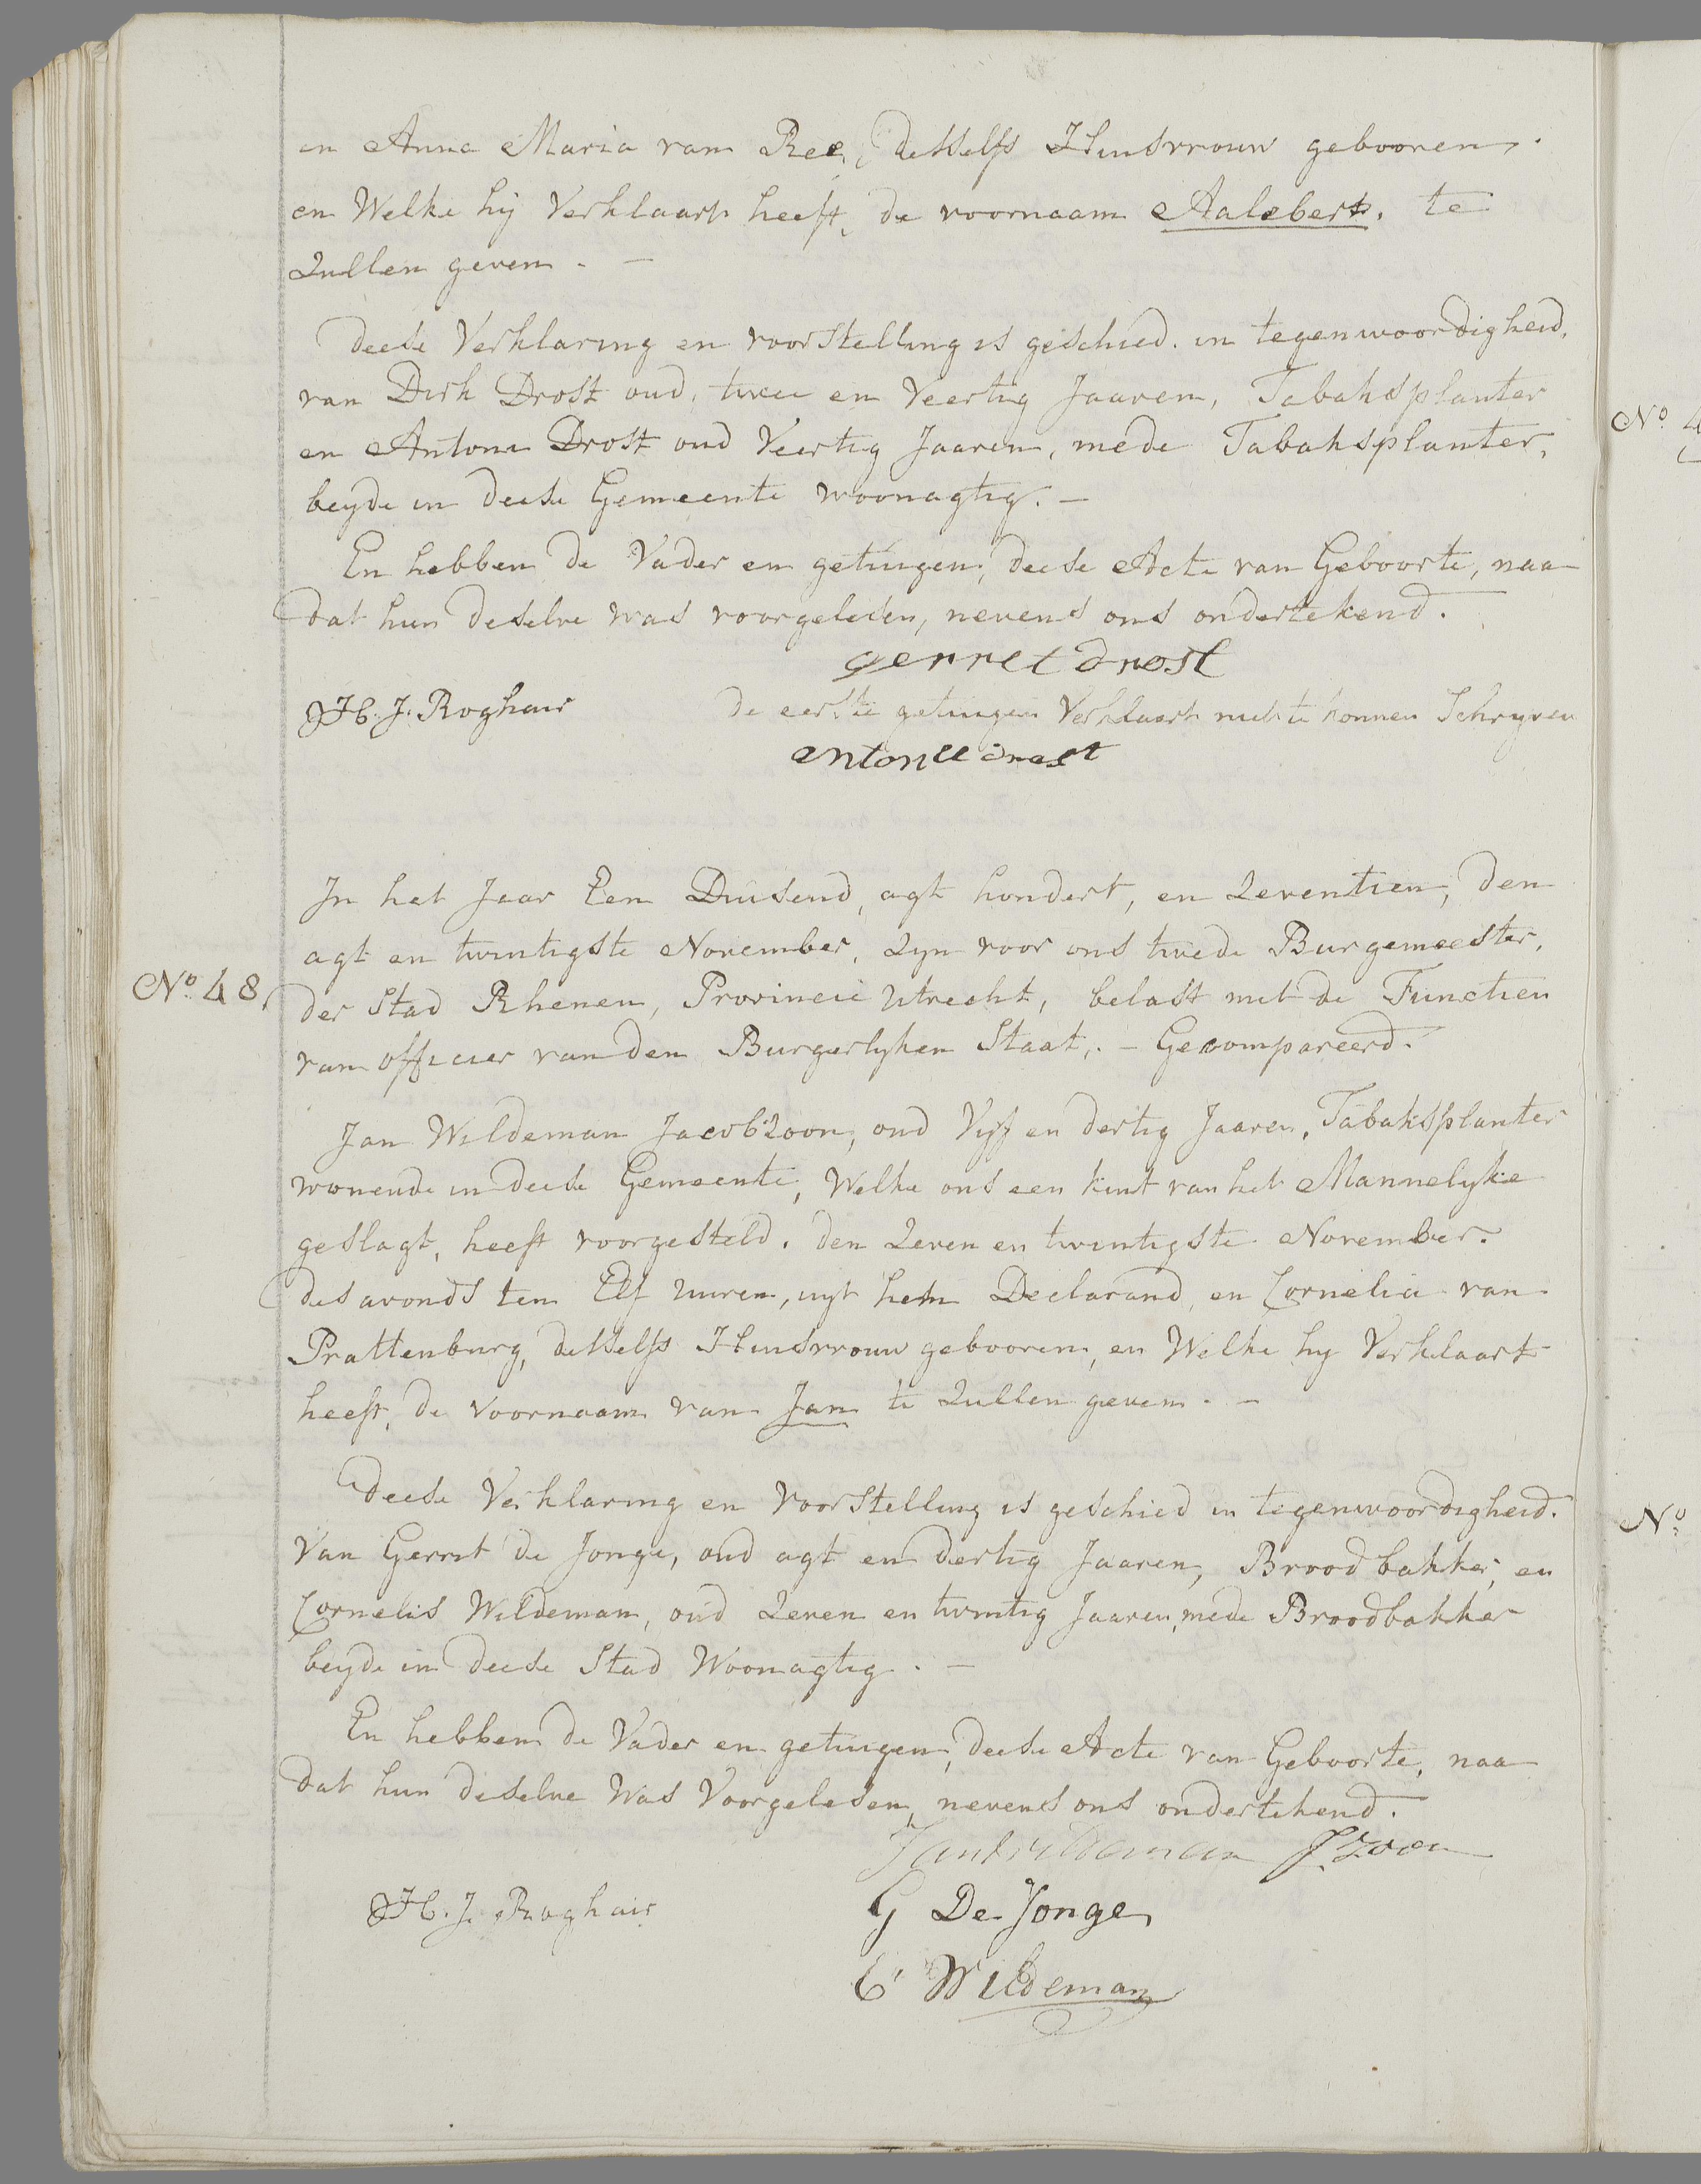 en Anna Maria van Ree, desselfs Huisvrouw gebooren,
en Welke hij Verklaart heeft, de voornaam Aalebert. te
zullen geven. -
deese Verklaring en voorstelling is geschied. in tegenwoordigheid.
van Dirk Drost oud, twee en Veertig Jaaren, Tabaksplanter
en Antoni Drost oud Veertig Jaaren, mede Tabaksplanter,
beyde in deese Gemeente woonagtig. -
En hebben de Vader en getuigen, deese Acte van Geboorte, naa
dat hun deselve was voorgelesen, nevens ons ondertekend.
gerret drost
H. J. Roghair
de eerste getuigen Verklaart niet te konnen Schryven
antonie drost
In het Jaar Een Duisend, agt hondert, en zeventien, den
agt en twintigste November, zyn voor ons twede Burgemeester,
No. 48,
der Stad Rhenen, Provincie Utrecht, belast met de Functien
van officier van den Burgerlyken Staat,. - Gecompareerd.
Jan Wildeman Jacobzoon, oud Vyf en dertig Jaaren, Tabaksplanter
wonende in deese Gemeente, Welke ons een kint van het Mannelyke
geslagt, heeft voorgesteld. den zeven en twintigste November.
des avonds ten Elf uuren, uyt hem Declarand, en Cornelia van
Prattenburg, desselfs Huisvrouw gebooren, en Welke hy Verklaart
heeft, de voornaam van Jan te zullen geven. -
Deese Verklaring en Voorstelling is geschied in tegenwoordigheid.
Van Gerrit de Jonge, oud agt en dertig Jaaren, Broodbakker, en
Cornelis Wildeman, oud zeven en twintig Jaaren, mede Broodbakker
beyde in deese Stad Woonagtig. -
En hebben de Vader en getuigen, deese Acte van Geboorte, naa
dat hun deselve Was Voorgelesen, nevens ons ondertekend.
Jan Wildeman J. zoon
H. J. Roghair
G De Jonge
C Wildeman
No. 4
No.